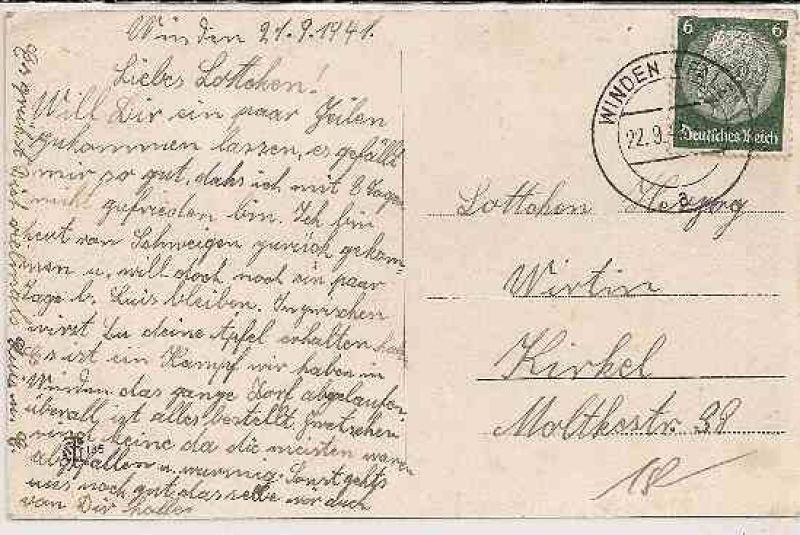 Winden 21.9.1941.
Liebes Lottchen!
Will Dir ein paar Zeilen
zukommen lassen, es gefällt
mir so gut, dahs ich mit 8 Tagen
nicht zufrieden bin. Ich bin
heut von Schweigen zurück gekom-
men u. will doch noch ein paar
Tage b. Luis bleiben. Inzwischen
wirst Du deine Äpfel erhalten haben
Es ist ein Kampf wir haben in
Winden das ganze Dorf abgelaufen.
überall ist alles bestellt. Zwetschen
keine da die meisten waren
abgefallen u. wurmig. Sonst gehts
uns noch gut, dasselbe wir auch
von Dir hoffen
Es grüßt Dich vielmals
135
6 6
Deutsches Reich
WINDEN
22.9.
a
Lottchen
Wirtin
Kirkel
Moltkestr. 38
18